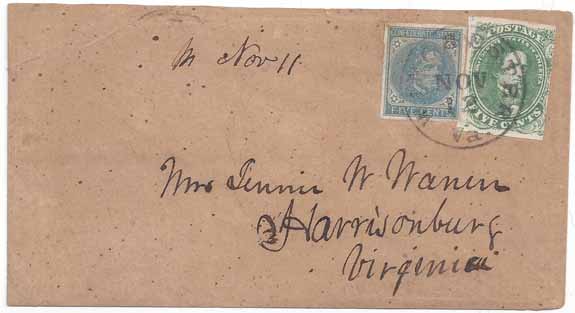 Nov 11
CONFEDERATE STATES
FIVE CENTS
POSTAGE
FIVE CENTS
NOV
VA
Mrs Jennie W Warren
Harrisonburg
Virginia